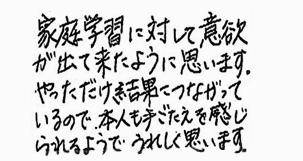 家庭学習に対して意欲
が出て来たように思います。
やっただけ結果につながって
いるので、本人も手ごたえを感じ
られるようでうれしく思います。